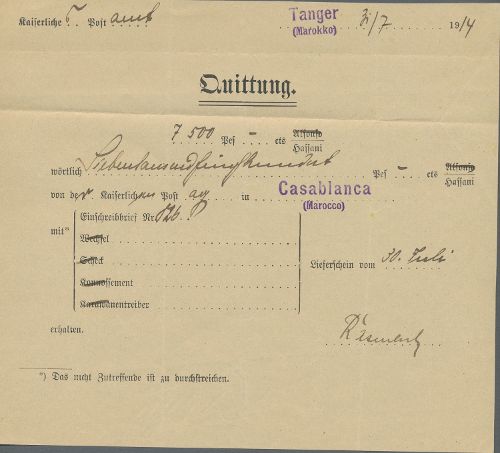 Kaiserliche T. Post amt Tanger 31/7 1914
(Marokko)
Quittung.
7 500 Pes — cts Alfonso
Hassani
wörtlich Siebentausendfünfhundert Pes — cts Alfonso
Hassani
von der Kaiserlichen Post ag in Casablanca
(Marocco)
mit*) Einschreibbrief Nr.
Wechsel
Scheck Lieferschein vom 30. Juli
Konnossement
Karawanentreiber
erhalten.
*) Das nicht Zutreffende ist zu durchstreichen.